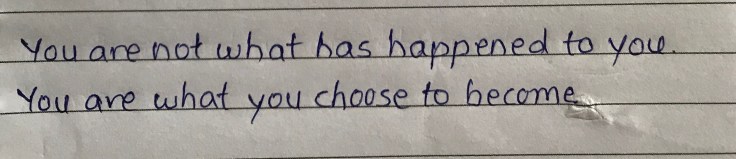 You are not what has happened to you.
You are what you choose to become